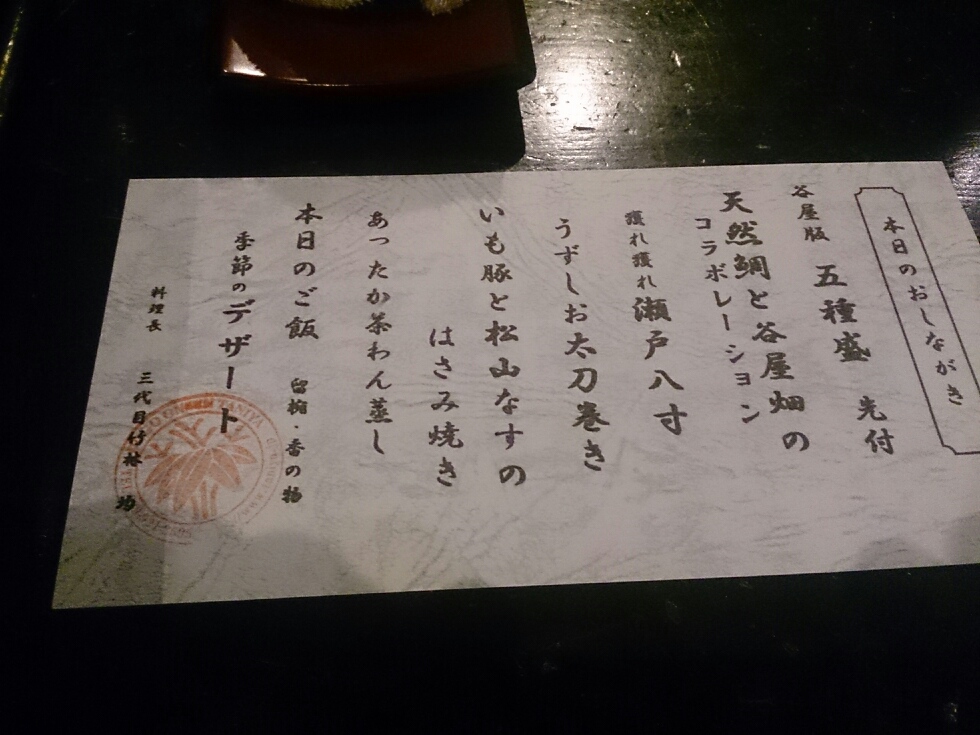 本日のおしながき
谷屋版 五種盛 先付
天然鯛と谷屋畑の
コラボレーション
獲れ獲れ瀬戸八寸
うずしお太刀巻き
いも豚と松山なすの
はさみ焼き
あったか茶わん蒸し
本日のご飯 留椀・香の物
季節のデザート
料理長 三代目